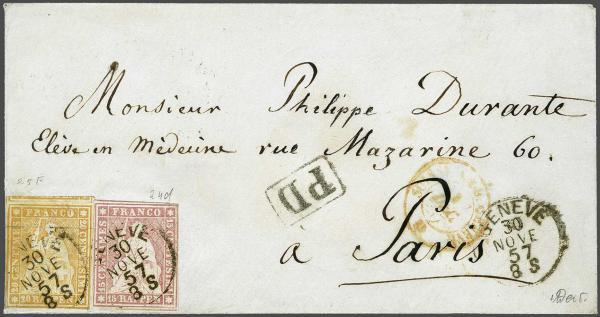 Monsieur Philippe Durante
Elève en Médecine rue Mazarine 60.
à Paris
25F
24d
PD
GENÈVE
30
NOVE
57
8 S
FRANCO
20 RAPPEN
FRANCO
15 RAPPEN
15 CENTES
GENÈVE
30
NOVE
57
8 S
GENÈVE
30
NOVE
57
8 S